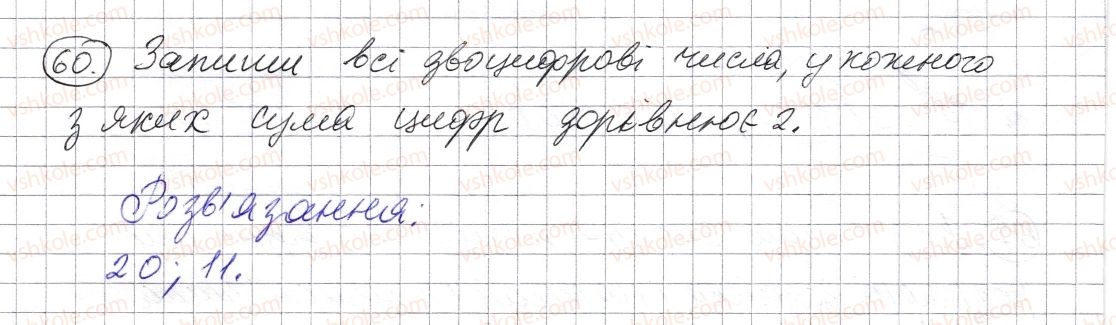 60. Запиши всі двоцифрові числа, у кожного
з яких сума цифр дорівнює 2.
Розв'язання:
20; 11.